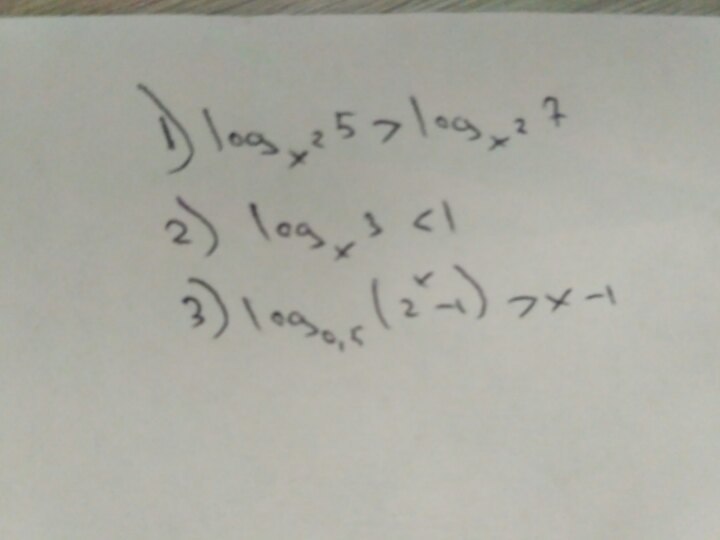 1) log_{x^2} 5 > log_{x^2} 7
2) log_x 3 < 1
3) log_{0,5} (2^x - 1) > x - 1